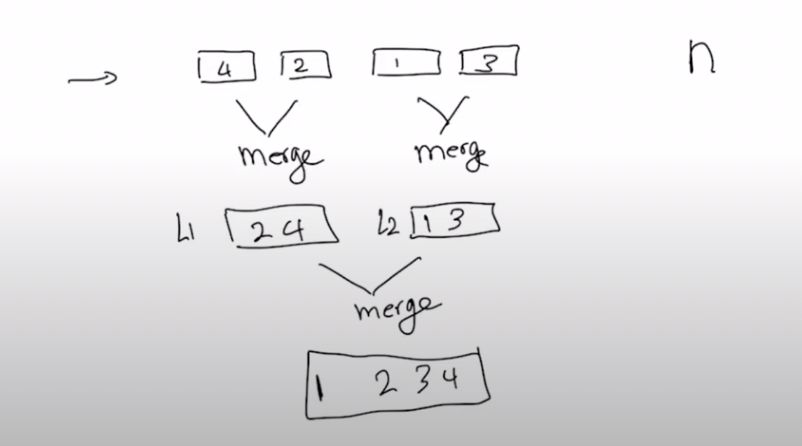 4 2 1 3 n
merge merge
L1 2 4 L2 1 3
merge
1 2 3 4